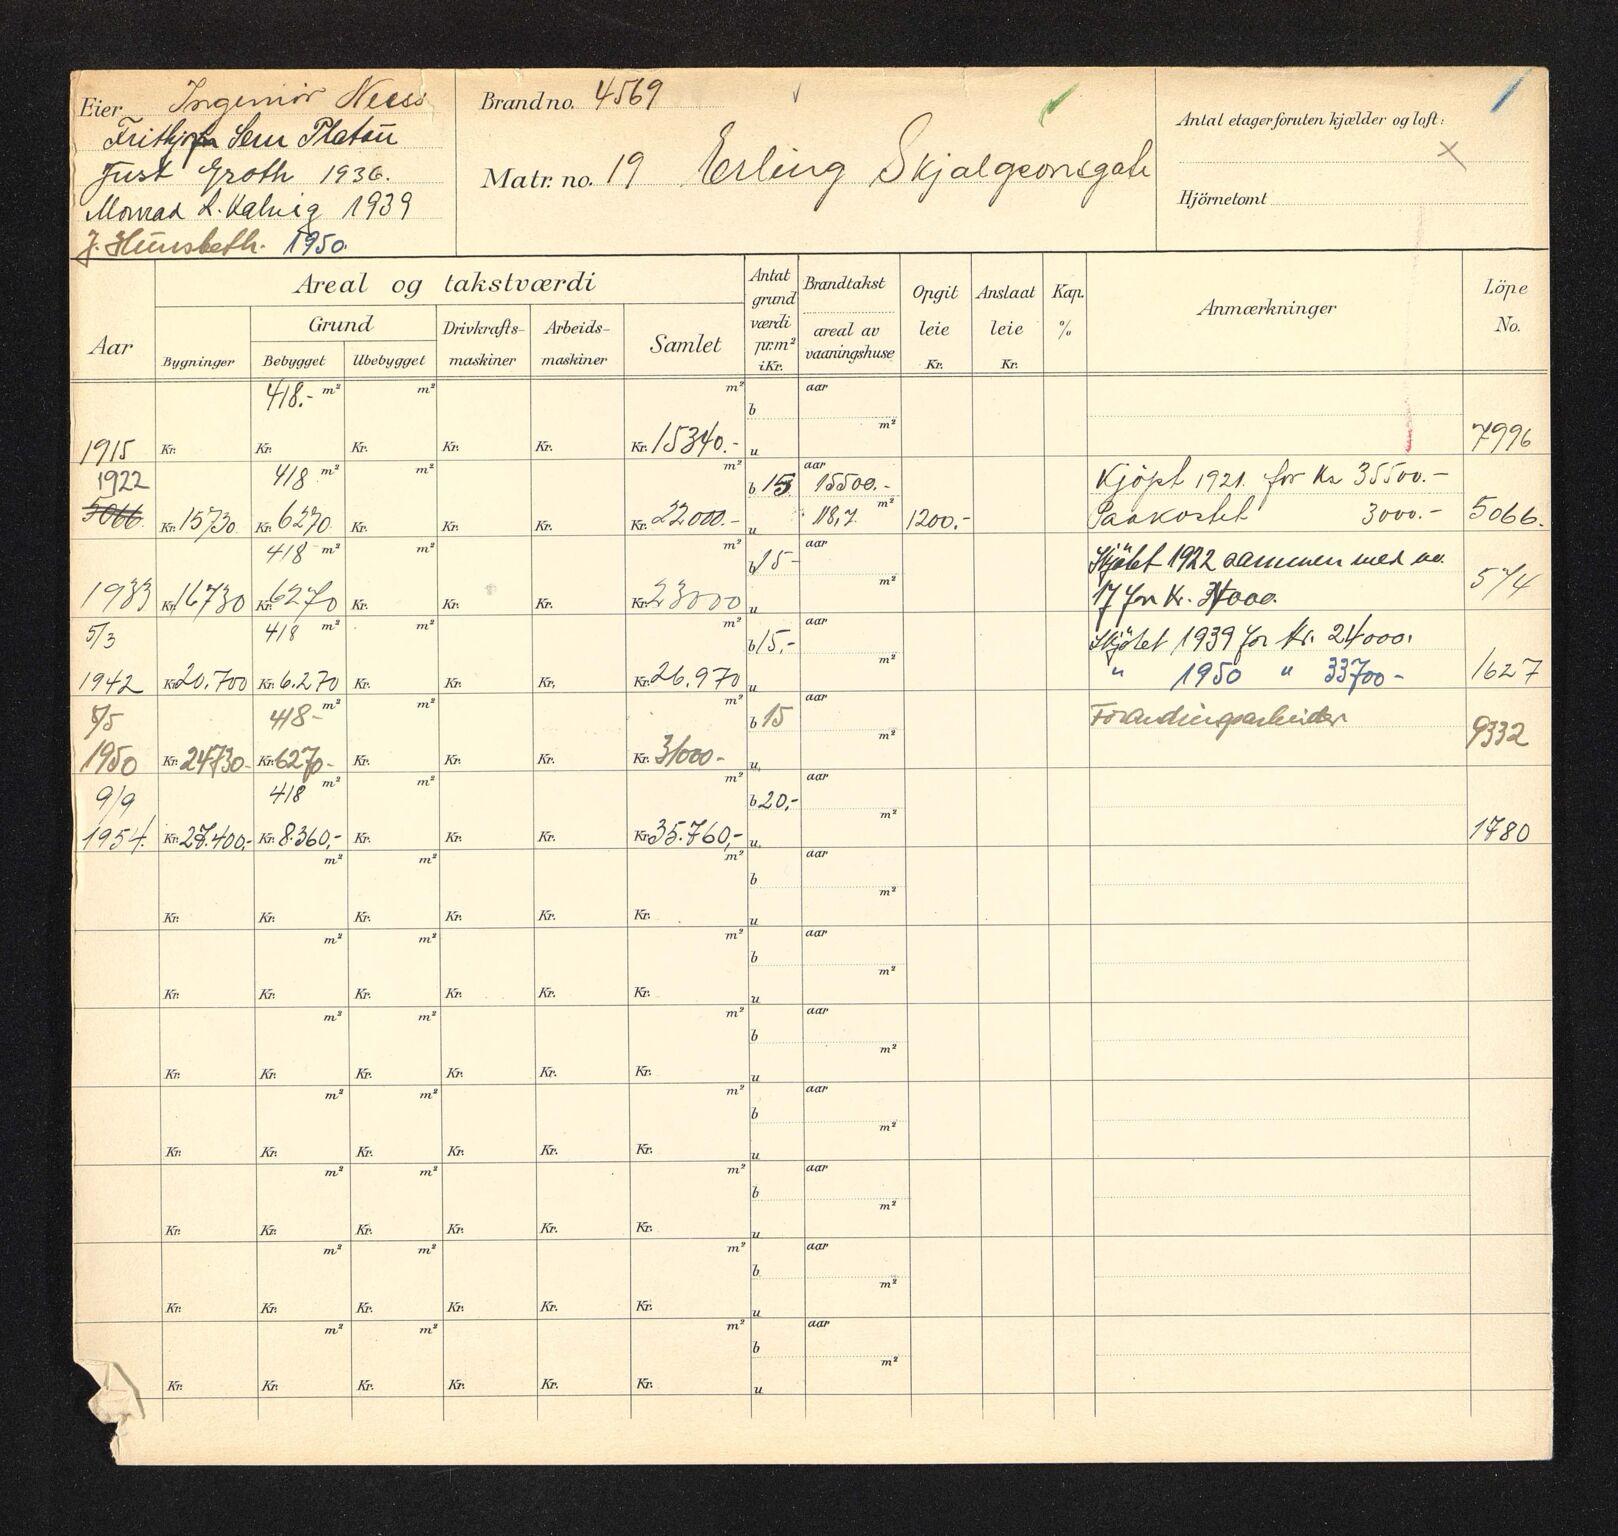 Eier Ingemór Neess
Fritkjof Sem Platou
Just Groth 1936.
Monrad L. Kalvig 1939
J. Hunsbeth. 1950.
Brand no. 4569
Matr. no. 19 Erling Skjalgsonsgate
Antal etager foruten kjælder og loft:
X
Hjörnetomt
Aar
Areal og takstværdi
Grund
Bygninger
Bebygget
Ubebygget
Drivkrafts-
maskiner
Arbeids-
maskiner
Samlet
Antat
grund
værdi
pr. m²
i Kr.
Brandtakst
areal av
vaaningshuse
Opgit
leie
Kr.
Anslaat
leie
Kr.
Kap.
%
Anmærkninger
Löpe
No.
418.- m² m² m² b aar
m²
1915 Kr. Kr. Kr. Kr. Kr. Kr. 15340.- u 7996
1922 418 m² m² m² b 15 aar 15500.- Kjöpt 1921 for Kr 35500.-
5066. Kr. 15730 Kr. 6270 Kr. Kr. Kr. Kr. 22000.- u 118,7 m² 1200.- Paakostet 3000.- 5066.
418 m² m² m² b 15- aar Skjötet 1922 sammen med no.
1933 Kr. 16730 Kr. 6270 Kr. Kr. Kr. Kr. 23000 u m² 17 for Kr. 574
5/3 418 m² m² m² b 15.- aar Skjötet 1939 for Kr. 24000.
1942 Kr. 20.700 Kr. 6.270 Kr. Kr. Kr. Kr. 26.970 u m² " 1950 " 33700- 1627
5/5 418- m² m² m² b 15 aar Forandringsarbeider
1950 Kr. 24730- Kr. 6270- Kr. Kr. Kr. Kr. 31000- u m² 9332
9/9 418 m² m² m² b 20,- aar
1954. Kr. 27.400,- Kr. 8.360,- Kr. Kr. Kr. Kr. 35.760,- u m² 1780
m² m² m² b aar
Kr. Kr. Kr. Kr. Kr. Kr. u m²
m² m² m² b aar
Kr. Kr. Kr. Kr. Kr. Kr. u m²
m² m² m² b aar
Kr. Kr. Kr. Kr. Kr. Kr. u m²
m² m² m² b aar
Kr. Kr. Kr. Kr. Kr. Kr. u m²
m² m² m² b aar
Kr. Kr. Kr. Kr. Kr. Kr. u m²
m² m² m² b aar
Kr. Kr. Kr. Kr. Kr. Kr. u m²
m² m² m² b aar
Kr. Kr. Kr. Kr. Kr. Kr. u m²